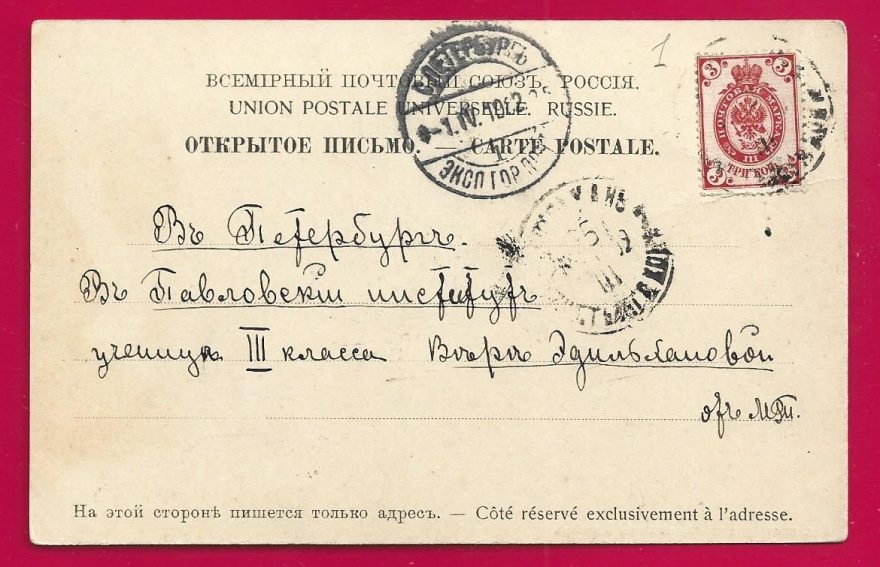 1
ВСЕМІРНЫЙ ПОЧТОВЫЙ СОЮЗЪ. РОССІЯ.
UNION POSTALE UNIVERSELLE. RUSSIE.
ОТКРЫТОЕ ПИСЬМО. — CARTE POSTALE.
С.ПЕТЕРБУРГЪ
1.IV.1902
ЭКСП ГОР
3 3
ПОЧТОВАЯ МАРКА
III
3 ТРИ КОП. 3
Въ Петербургъ.
Въ Павловскій институтъ
ученицѣ III класса Вѣрѣ Эдильхановой
отъ
На этой сторонѣ пишется только адресъ. — Côté réservé exclusivement à l'adresse.